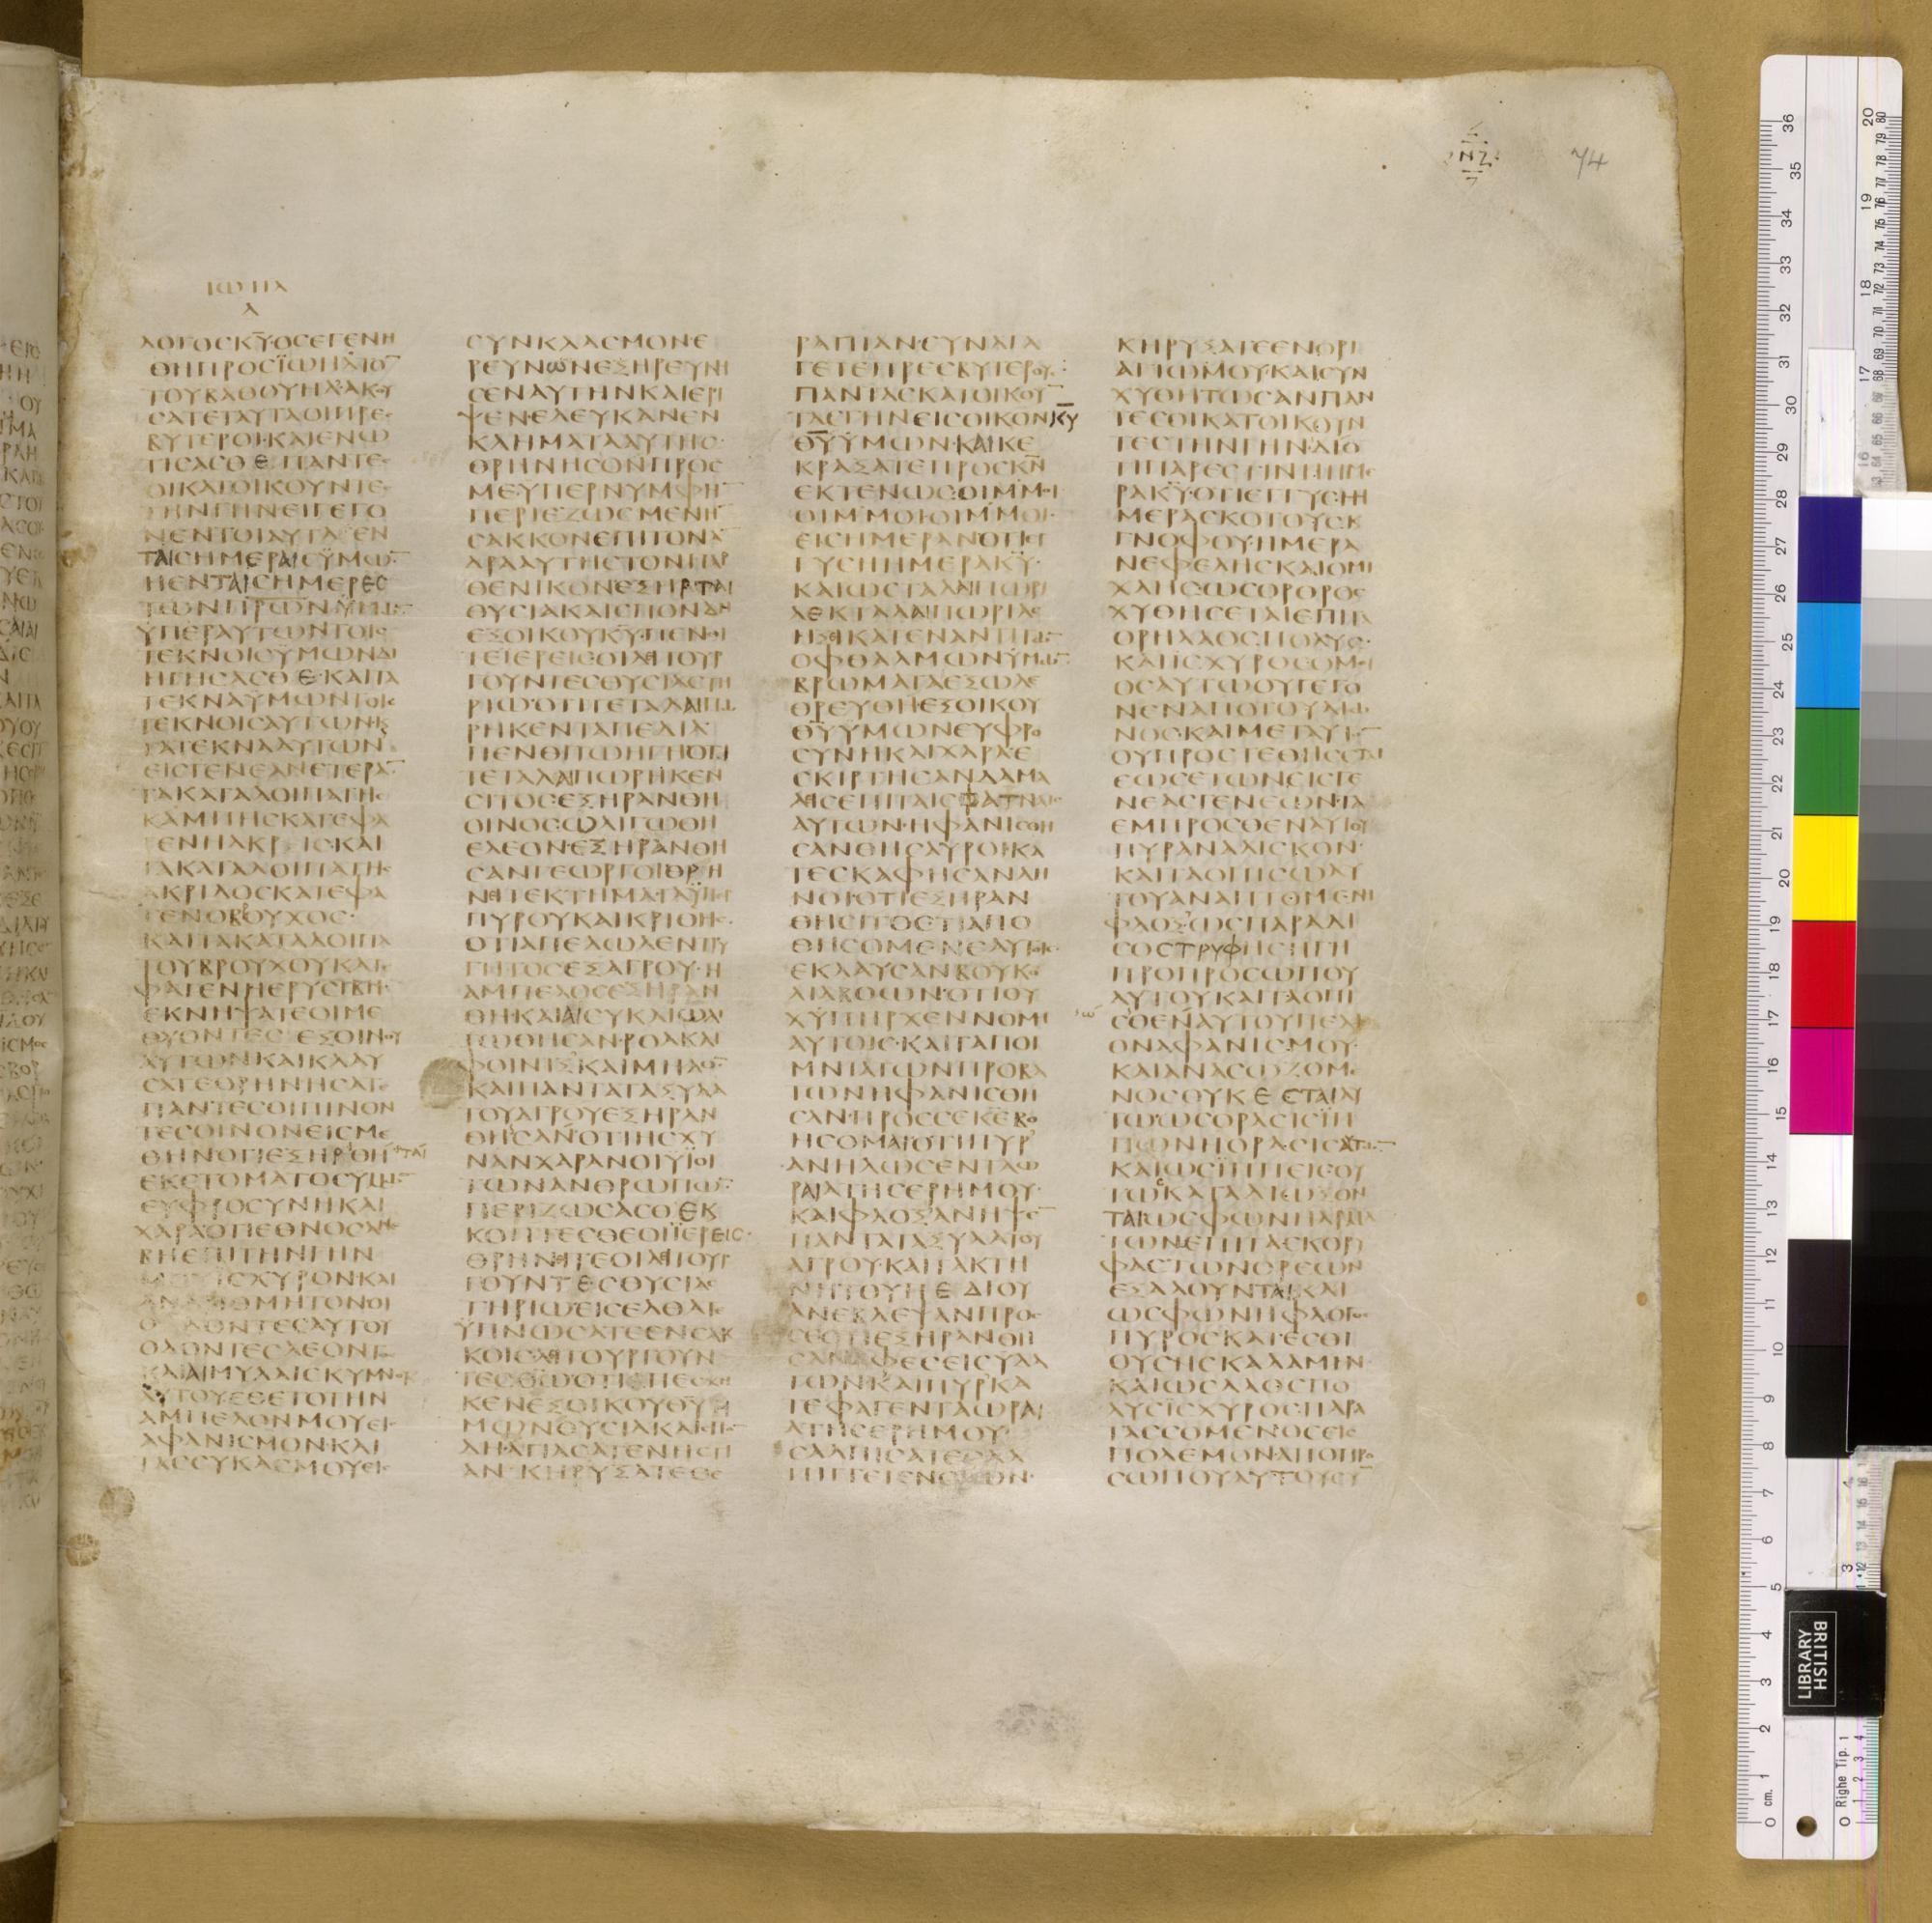 ΙΩΗΛ
Α
ΝΖ
74
ΛΟΓΟΣΚΥΟΣΕΓΕΝΗ
ΘΗΠΡΟΣΪΩΗΛΤΟ
ΤΟΥΒΑΘΟΥΗΛΑΚΟΥ
ΣΑΤΕΤΑΥΤΑΟΙΠΡΕΣ
ΒΥΤΕΡΟΙΚΑΙΕΝΩ
ΤΙΣΑΣΘΕΠΑΝΤΕΣ
ΟΙΚΑΤΟΙΚΟΥΝΤΕΣ
ΤΗΝΓΗΝΕΙΓΕΓΟ
ΝΕΝΤΟΙΑΥΤΑΕΝ
ΤΑΙΣΗΜΕΡΑΙΣΫΜΩ
ΗΕΝΤΑΙΣΗΜΕΡΕΣ
ΤΩΝΠΡΩΝΫΜΩ
ΫΠΕΡΑΥΤΩΝΤΟΙΣ
ΤΕΚΝΟΙΣΫΜΩΝΔΙ
ΗΓΗΣΑΣΘΕΚΑΙΤΑ
ΤΕΚΝΑΫΜΩΝΤΟΙΣ
ΤΕΚΝΟΙΣΑΥΤΩΝΚΣ
ΤΑΤΕΚΝΑΑΥΤΩΝ
ΕΙΣΓΕΝΕΑΝΕΤΕΡΑ
ΤΑΚΑΤΑΛΟΙΠΑΤΗΣ
ΚΑΜΠΗΣΚΑΤΕΦΑ
ΓΕΝΗΑΚΡΙΣΚΑΙ
ΤΑΚΑΤΑΛΟΙΠΑΤΗΣ
ΑΚΡΙΔΟΣΚΑΤΕΦΑ
ΓΕΝΟΒΡΟΥΧΟΣ
ΚΑΙΤΑΚΑΤΑΛΟΙΠΑ
ΤΟΥΒΡΟΥΧΟΥΚΑΤΕ
ΦΑΓΕΝΗΕΡΥΣΙΒΗ
ΕΚΝΗΨΑΤΕΟΙΜΕ
ΘΥΟΝΤΕΣΕΞΟΙΝΟΥ
ΑΥΤΩΝΚΑΙΚΛΑΥ
ΣΑΤΕΘΡΗΝΗΣΑΤΕ
ΠΑΝΤΕΣΟΙΠΙΝΟΝ
ΤΕΣΟΙΝΟΝΕΙΣΜΕ
ΘΗΝΟΤΙΕΞΗΡΘΗ
ΕΚΣΤΟΜΑΤΟΣΥΜΩ
ΕΥΦΡΟΣΥΝΗΚΑΙ
ΧΑΡΑΟΤΙΕΘΝΟΣΑΝΕ
ΒΗΕΠΙΤΗΝΓΗΝ
ΜΟΥΙΣΧΥΡΟΝΚΑΙ
ΑΝΑΡΙΘΜΗΤΟΝΟΙ
ΟΔΟΝΤΕΣΑΥΤΟΥ
ΟΔΟΝΤΕΣΛΕΟΝΤΟΣ
ΚΑΙΑΙΜΥΛΑΙΣΚΥΜΝΟΥ
ΑΥΤΟΥΕΘΕΤΟΤΗΝ
ΑΜΠΕΛΟΝΜΟΥΕΙΣ
ΑΦΑΝΙΣΜΟΝΚΑΙ
ΤΑΣΣΥΚΑΣΜΟΥΕΙΣ
ΣΥΝΚΛΑΣΜΟΝΕ
ΡΕΥΝΩΝΕΞΗΡΕΥΝΗ
ΣΕΝΑΥΤΗΝΚΑΙΕΡΙ
ΨΕΝΕΛΕΥΚΑΝΕΝ
ΚΛΗΜΑΤΑΑΥΤΗΣ
ΘΡΗΝΗΣΟΝΠΡΟΣ
ΜΕΥΠΕΡΝΥΜΦΗ
ΠΕΡΙΕΖΩΣΜΕΝΗ
ΣΑΚΚΟΝΕΠΙΤΟΝΑ
ΔΡΑΑΥΤΗΣΤΟΝΠΑΡ
ΘΕΝΙΚΟΝΕΞΗΡΤΑΙ
ΘΥΣΙΑΚΑΙΣΠΟΝΔΗ
ΕΞΟΙΚΟΥΚΥΠΕΝΘΙ
ΤΕΙΕΡΕΙΣΟΙΛΙΤΟΥΡ
ΓΟΥΝΤΕΣΘΥΣΙΑΣΤΗ
ΡΙΩΟΤΙΤΕΤΑΛΑΙΠΩ
ΡΗΚΕΝΤΑΠΕΔΙΑ
ΠΕΝΘΙΤΩΗΓΗΟΤΙ
ΤΕΤΑΛΑΙΠΩΡΗΚΕΝ
ΣΙΤΟΣΕΞΗΡΑΝΘΗ
ΟΙΝΟΣΩΛΙΓΩΘΗ
ΕΛΕΟΝΕΞΗΡΑΝΘΗ
ΣΑΝΓΕΩΡΓΟΙΘΡΗ
ΝΕΙΤΕΚΤΗΜΑΤΑΫΠΕΡ
ΠΥΡΟΥΚΑΙΚΡΙΘΗΣ
ΟΤΙΑΠΕΛΩΛΕΝΤΡΥ
ΓΗΤΟΣΕΞΑΓΡΟΥΗ
ΑΜΠΕΛΟΣΕΞΗΡΑΝ
ΘΗΚΑΙΑΙΣΥΚΑΙΩΛΙ
ΓΩΘΗΣΑΝΡΟΑΚΑΙ
ΦΟΙΝΙΞΚΑΙΜΗΛΟ
ΚΑΙΠΑΝΤΑΤΑΞΥΛΑ
ΤΟΥΑΓΡΟΥΕΞΗΡΑΝ
ΘΗΣΑΝΟΤΙΗΣΧΥ
ΝΑΝΧΑΡΑΝΟΙΥΪΟΙ
ΤΩΝΑΝΘΡΩΠΩ
ΠΕΡΙΖΩΣΑΣΘΕΚ
ΚΟΠΤΕΣΘΕΟΙΪΕΡΕΙΣ
ΘΡΗΝΕΙΤΕΟΙΛΙΤΟΥΡ
ΓΟΥΝΤΕΣΘΥΣΙΑΣ
ΤΗΡΙΩΕΙΣΕΛΘΑΤΕ
ΫΠΝΩΣΑΤΕΕΝΣΑΚ
ΚΟΙΣΛΙΤΟΥΡΓΟΥΝ
ΤΕΣΘΩΟΤΙΑΠΕΣΧΗ
ΚΕΝΕΞΟΙΚΟΥΘΥΫ
ΜΩΝΘΥΣΙΑΚΑΙΣΠΟ
ΔΗΑΓΙΑΣΑΤΕΝΗΣΤΙ
ΑΝΚΗΡΥΞΑΤΕΘΕ
ΡΑΠΙΑΝΣΥΝΑΓΑ
ΓΕΤΕΠΡΕΣΒΥΤΕΡΟΥΣ
ΠΑΝΤΑΣΚΑΤΟΙΚΟΥ
ΤΑΣΓΗΝΕΙΣΟΙΚΟΝΚΥ
ΘΥΫΜΩΝΚΑΙΚΕ
ΚΡΑΞΑΤΕΠΡΟΣΚΝ
ΕΚΤΕΝΩΣΟΙΜΜΟΙ
ΟΙΜΜΟΙΟΙΜΜΟΙ
ΕΙΣΗΜΕΡΑΝΟΤΙΕΓ
ΓΥΣΗΗΜΕΡΑΚΥ
ΚΑΙΩΣΤΑΛΑΙΠΩΡΙ
ΑΕΚΤΑΛΑΙΠΩΡΙΑΣ
ΗΞΕΙΚΑΤΕΝΑΝΤΙΤΩ
ΟΦΘΑΛΜΩΝΫΜΩ
ΒΡΩΜΑΤΑΕΞΩΛΕ
ΘΡΕΥΘΗΕΞΟΙΚΟΥ
ΘΥΫΜΩΝΕΥΦΡΟ
ΣΥΝΗΚΑΙΧΑΡΑΕ
ΣΚΙΡΤΗΣΑΝΔΑΜΑ
ΛΙΣΕΠΙΤΑΙΣΦΑΤΝΑΙΣ
ΑΥΤΩΝΗΦΑΝΙΣΘΗ
ΣΑΝΘΗΣΑΥΡΟΙΚΑ
ΤΕΣΚΑΦΗΣΑΝΛΗ
ΝΟΙΟΤΙΕΞΗΡΑΝ
ΘΗΣΙΤΟΣΤΙΑΠΟ
ΘΗΣΟΜΕΝΕΑΥΤΟΙΣ
ΕΚΛΑΥΣΑΝΒΟΥΚΟ
ΛΙΑΒΟΩΝΟΤΙΟΥ
ΧΫΠΗΡΧΕΝΝΟΜΗ
ΑΥΤΟΙΣΚΑΙΤΑΠΟΙ
ΜΝΙΑΤΩΝΠΡΟΒΑ
ΤΩΝΗΦΑΝΙΣΘΗ
ΣΑΝΠΡΟΣΣΕΚΕΒΟ
ΗΣΟΜΑΙΟΤΙΠΥΡ
ΑΝΗΛΩΣΕΝΤΑΩ
ΡΑΙΑΤΗΣΕΡΗΜΟΥ
ΚΑΙΦΛΟΞΑΝΗΨΕ
ΠΑΝΤΑΤΑΞΥΛΑΤΟΥ
ΑΓΡΟΥΚΑΙΤΑΚΤΗ
ΝΗΤΟΥΠΕΔΙΟΥ
ΑΝΕΒΛΕΨΑΝΠΡΟΣ
ΣΕΟΤΙΕΞΗΡΑΝΘΗ
ΣΑΝΑΦΕΣΕΙΣΥΔΑ
ΤΩΝΚΑΙΠΥΡΚΑ
ΤΕΦΑΓΕΝΤΑΩΡΑΙ
ΑΤΗΣΕΡΗΜΟΥ
ΣΑΛΠΙΣΑΤΕΣΑΛ
ΠΙΓΓΕΙΕΝΣΙΩΝ
ΚΗΡΥΞΑΤΕΕΝΟΡΙ
ΑΓΙΩΜΟΥΚΑΙΣΥΝ
ΧΥΘΗΤΩΣΑΝΠΑΝ
ΤΕΣΟΙΚΑΤΟΙΚΟΥΝ
ΤΕΣΤΗΝΓΗΝΔΙΟ
ΤΙΠΑΡΕΣΤΙΝΗΗΜΕ
ΡΑΚΫΟΤΙΕΓΓΥΣΗΗ
ΜΕΡΑΣΚΟΤΟΥΣΚ
ΓΝΟΦΟΥΗΜΕΡΑ
ΝΕΦΕΛΗΣΚΑΙΟΜΙ
ΧΛΗΣΩΣΟΡΘΡΟΣ
ΧΥΘΗΣΕΤΑΙΕΠΙΤΑ
ΟΡΗΛΑΟΣΠΟΛΥΣ
ΚΑΙΪΣΧΥΡΟΣΟΜΟΙ
ΟΣΑΥΤΩΟΥΓΕΓΟ
ΝΕΝΑΠΟΤΟΥΑΙΩ
ΝΟΣΚΑΙΜΕΤΑΥΤΟ
ΟΥΠΡΟΣΤΕΘΗΣΕΤΑΙ
ΕΩΣΕΤΩΝΕΙΣΓΕ
ΝΕΑΣΓΕΝΕΩΝΤΑ
ΕΜΠΡΟΣΘΕΝΑΥΤΟΥ
ΠΥΡΑΝΑΛΙΣΚΟΝ
ΚΑΙΤΑΟΠΙΣΩΑΥ
ΤΟΥΑΝΑΠΤΟΜΕΝΗ
ΦΛΟΞΩΣΠΑΡΑΔΙ
ΣΟΣΤΡΥΦΗΣΗΓΗ
ΠΡΟΠΡΟΣΩΠΟΥ
ΑΥΤΟΥΚΑΙΤΑΟΠΙ
ΣΘΕΝΑΥΤΟΥΠΕΔΙ
ΟΝΑΦΑΝΙΣΜΟΥ
ΚΑΙΑΝΑΣΩΖΟΜΕ
ΝΟΣΟΥΚΕΣΤΑΙΑΥ
ΤΩΩΣΟΡΑΣΙΣΪΠ
ΠΩΝΗΟΡΑΣΙΣΑΥΤΩ
ΚΑΙΩΣΪΠΠΕΙΣΟΥ
ΤΩΣΚΑΤΑΔΙΩΞΟΝ
ΤΑΙΩΣΦΩΝΗΑΡΜΑ
ΤΩΝΕΠΙΤΑΣΚΟΡΥ
ΦΑΣΤΩΝΟΡΕΩΝ
ΕΞΑΛΟΥΝΤΑΙΚΑΙ
ΩΣΦΩΝΗΦΛΟΓΟΣ
ΠΥΡΟΣΚΑΤΕΣΘΙ
ΟΥΣΗΣΚΑΛΑΜΗΝ
ΚΑΙΩΣΛΑΟΣΠΟ
ΛΥΣΪΣΧΥΡΟΣΠΑΡΑ
ΤΑΣΣΟΜΕΝΟΣΕΙΣ
ΠΟΛΕΜΟΝΑΠΟΠΡΟ
ΣΩΠΟΥΑΥΤΟΥΣΥ
36
35
34
33
32
31
30
29
28
27
26
25
24
23
22
21
20
19
18
17
16
15
14
13
12
11
10
9
8
7
6
5
4
3
2
1
0 cm.
BRITISH
LIBRARY
0 Righe Tip. 1